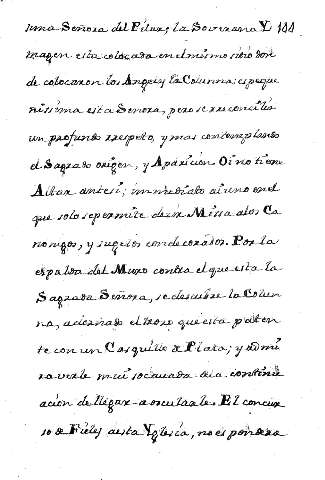 tima Señora del Pilar, la Soverana Y 144
magen esta colocada en el mismo sitio don
de colocaron los Angeles la Columna: es peque
ñissima esta Señora, pero se reconcilia
un profundo respeto, y mas contemplando
el Sagrado origen, y Aparicion. Oi no tiene
Altar ante si; inmediato ai uno en el
que solo se permite decir Missa a los Ca
nonigos, y sugetos condecorados. Por la
espalda del Muro contra el que esta la
Sagrada Señora, se descubre la Colum
na, adornado el trozo que esta paten
te con un Casquillo de Plata; y admi
ra verle mui socavada de la continu
acion de llegar a oscularle. El concur
so de Fieles a esta Yglesia, no es pondera